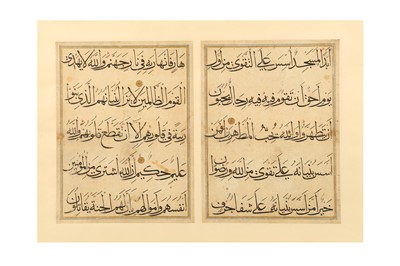 ابدا لمسجد اسس على التقوى من اول
يوم احق ان تقوم فيه فيه رجال يحبون
ان يتطهروا والله يحب المطهرين افمن
اسس بنيانه على تقوى من الله ورضوان
خير ام من اسس بنيانه على شفا جرف
هار فانهار به في نار جهنم والله لا يهدي
القوم الظالمين لا يزال بنيانهم الذي بنوا
ريبة في قلوبهم الا ان تقطع قلوبهم والله
عليم حكيم ان الله اشترى من المؤمنين
انفسهم واموالهم بان لهم الجنة يقاتلون